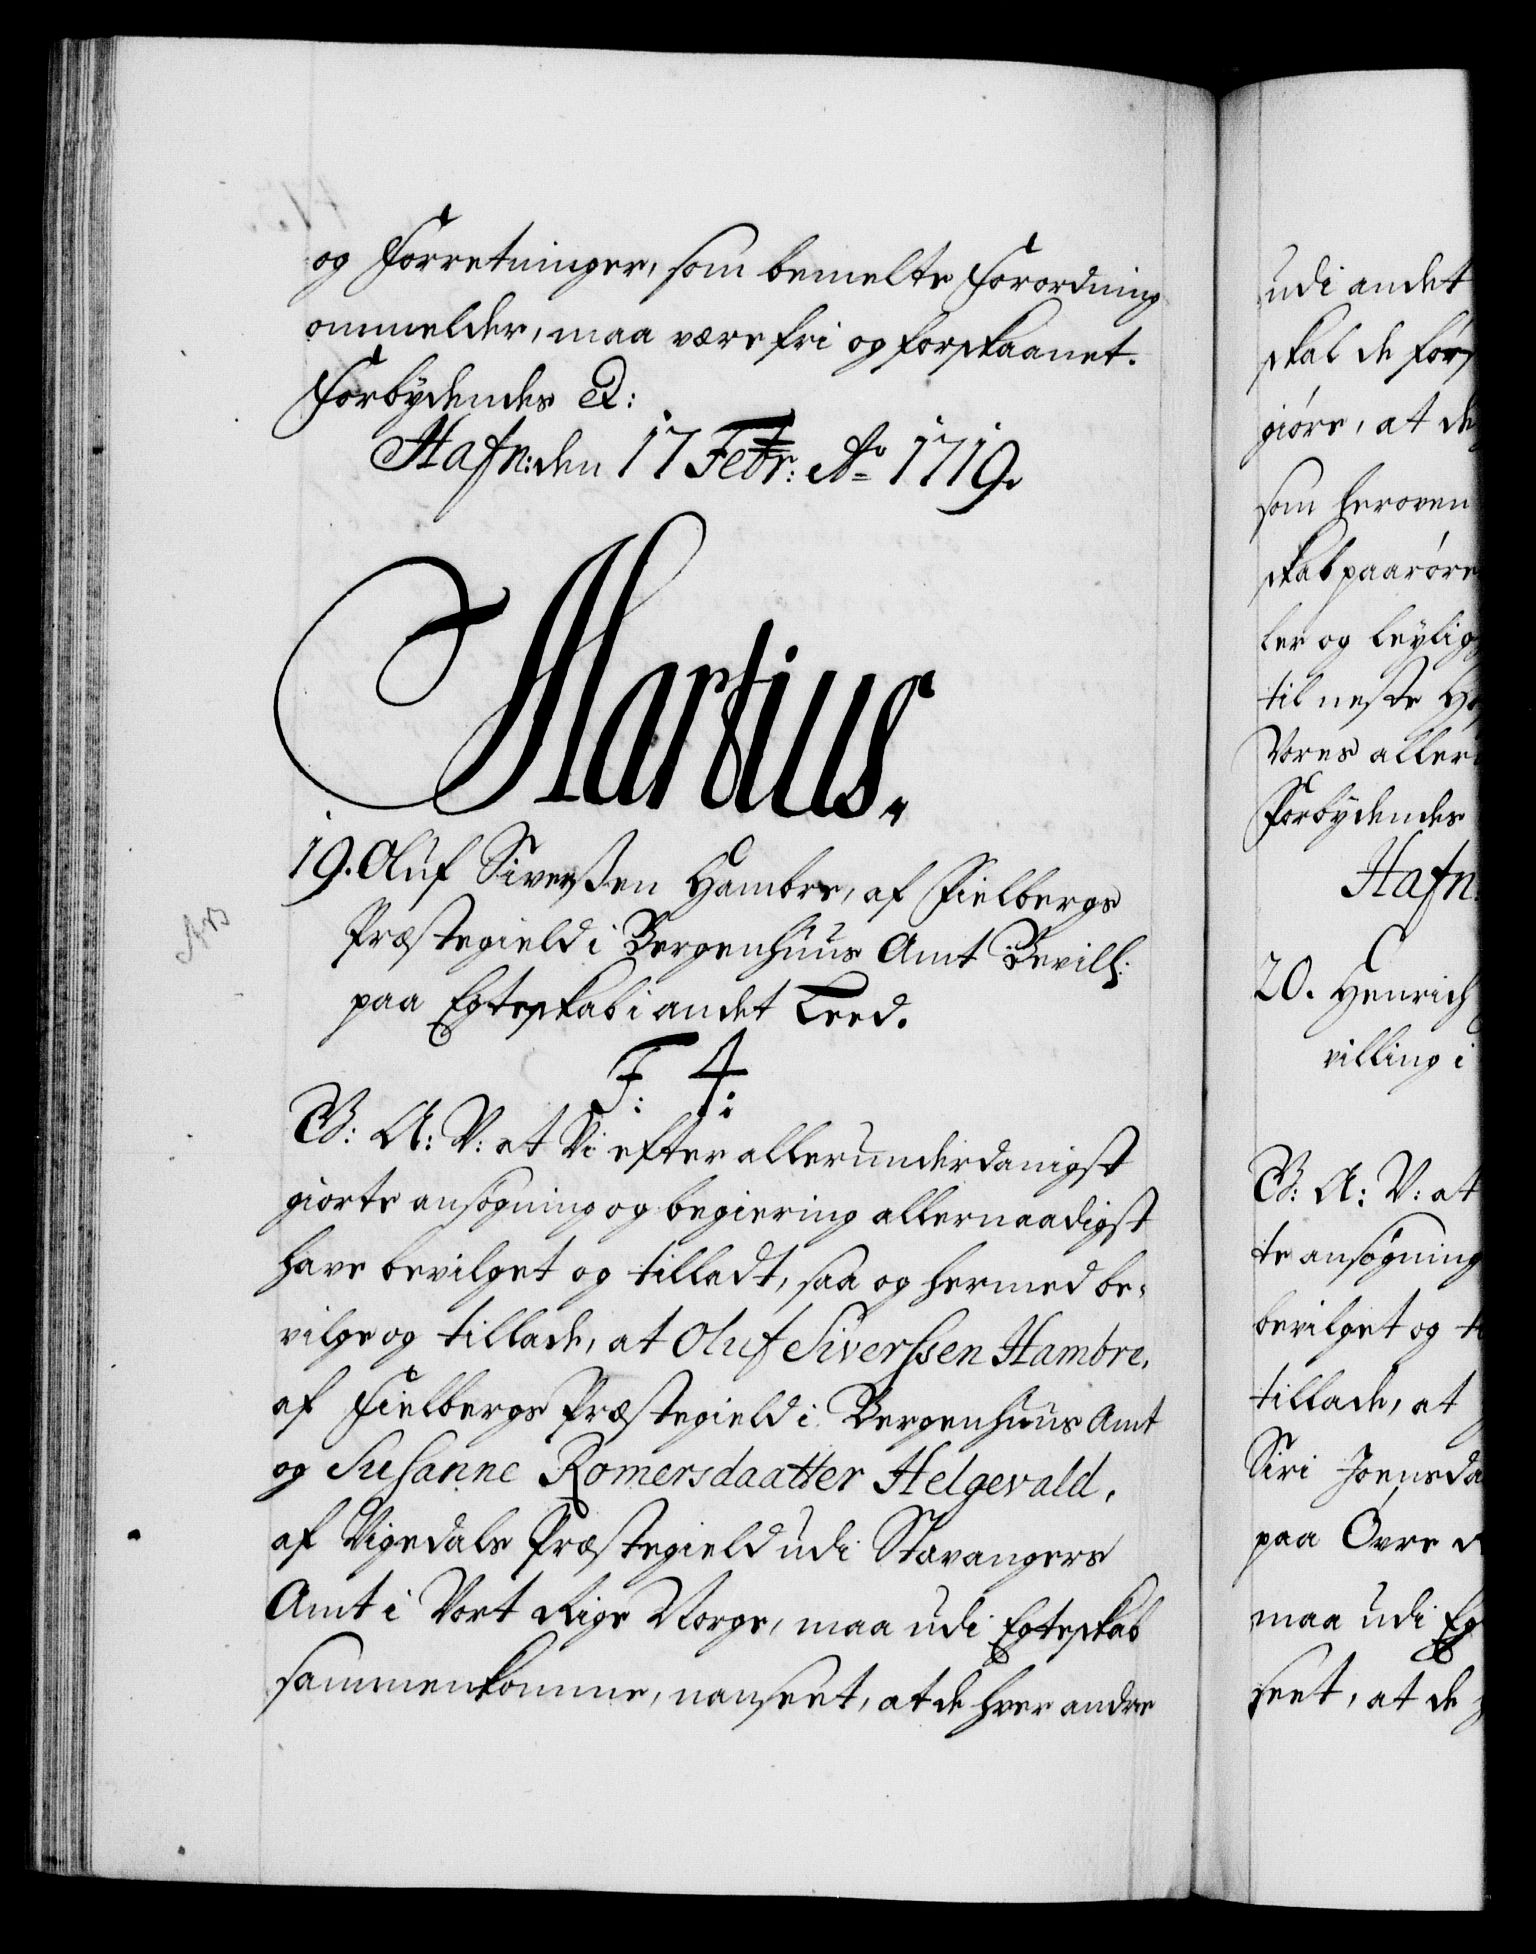 og Forretninger, som bemelte Forordning
ommelder, maa være fri og forskaanet.
Forbydendes &:
Hafn: den 17 Febr: Ao 1719.
Martius.
19. Oluf Siverssen Hambre, af Fielbergs
Præstegield i Bergenhuus Amt Bevill:
paa Egteskab i andet Leed.
F: 4:
G: A: V: at Vi efter allerunderdanigst
giorte ansøgning og begiering allernaadigst
have bevilget og tilladt, saa og hermed be-
vilge og tillade, at Oluf Siverssen Hambre,
af Fielbergs Præstegield i Bergenhuus Amt
og Susanne Romersdaatter Helgevald,
af Vigedals Præstegield udi Stavangers
Amt i Vort Rige Norge, maa udi Egteskab
sammenkomme, uanseet, at de hver andre
udi andet
skal de førs
giøre, at de
som heroven
skab paarøre
ler og leylig
til neste
Vores aller
Forbydendes
Hafn:
20. Henrich
villing i
G: A: V: at
te ansøgning
bevilget og t
tillade, at
Siri Joensda
paa Øvre
maa udi Eg
seet, at de